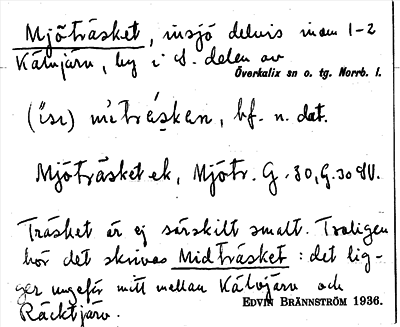 Mjöträsket, insjö delvis inom 1-2
Kälvjärv, by i S. delen av
Överkalix sn o. tg. Norrb. l.
mìtrásкan, bf. n. dat.
Mjöträsket ek, Mjötr. G. 30, G. 30 NV.
Träsket är ej särskilt smalt. Troligen
bör det skrivas Midträsket : det lig-
ger ungefär mitt mellan Kälvjärv och
Räcktjärv.
EDVIN BRÄNNSTRÖM 1936.